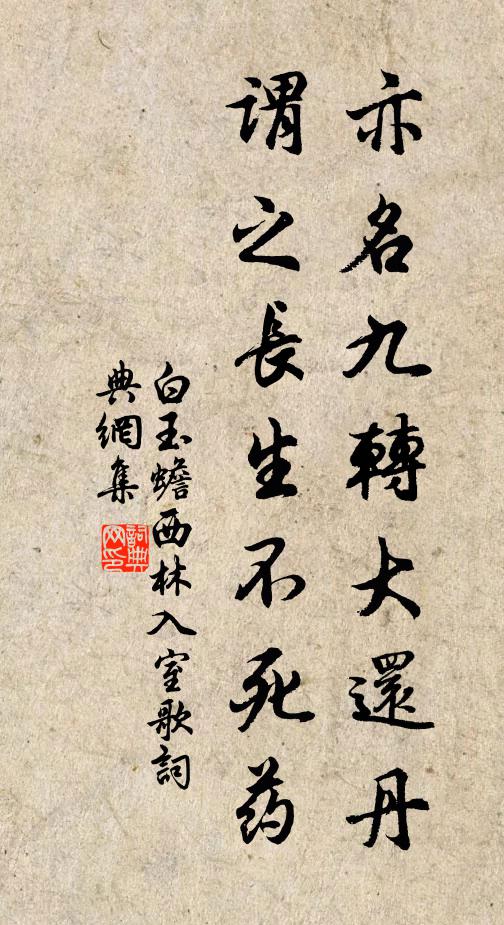 亦名九轉大還丹
謂之長生不死药
白玉蟾西林入室歌詞
典網集
詞典网印